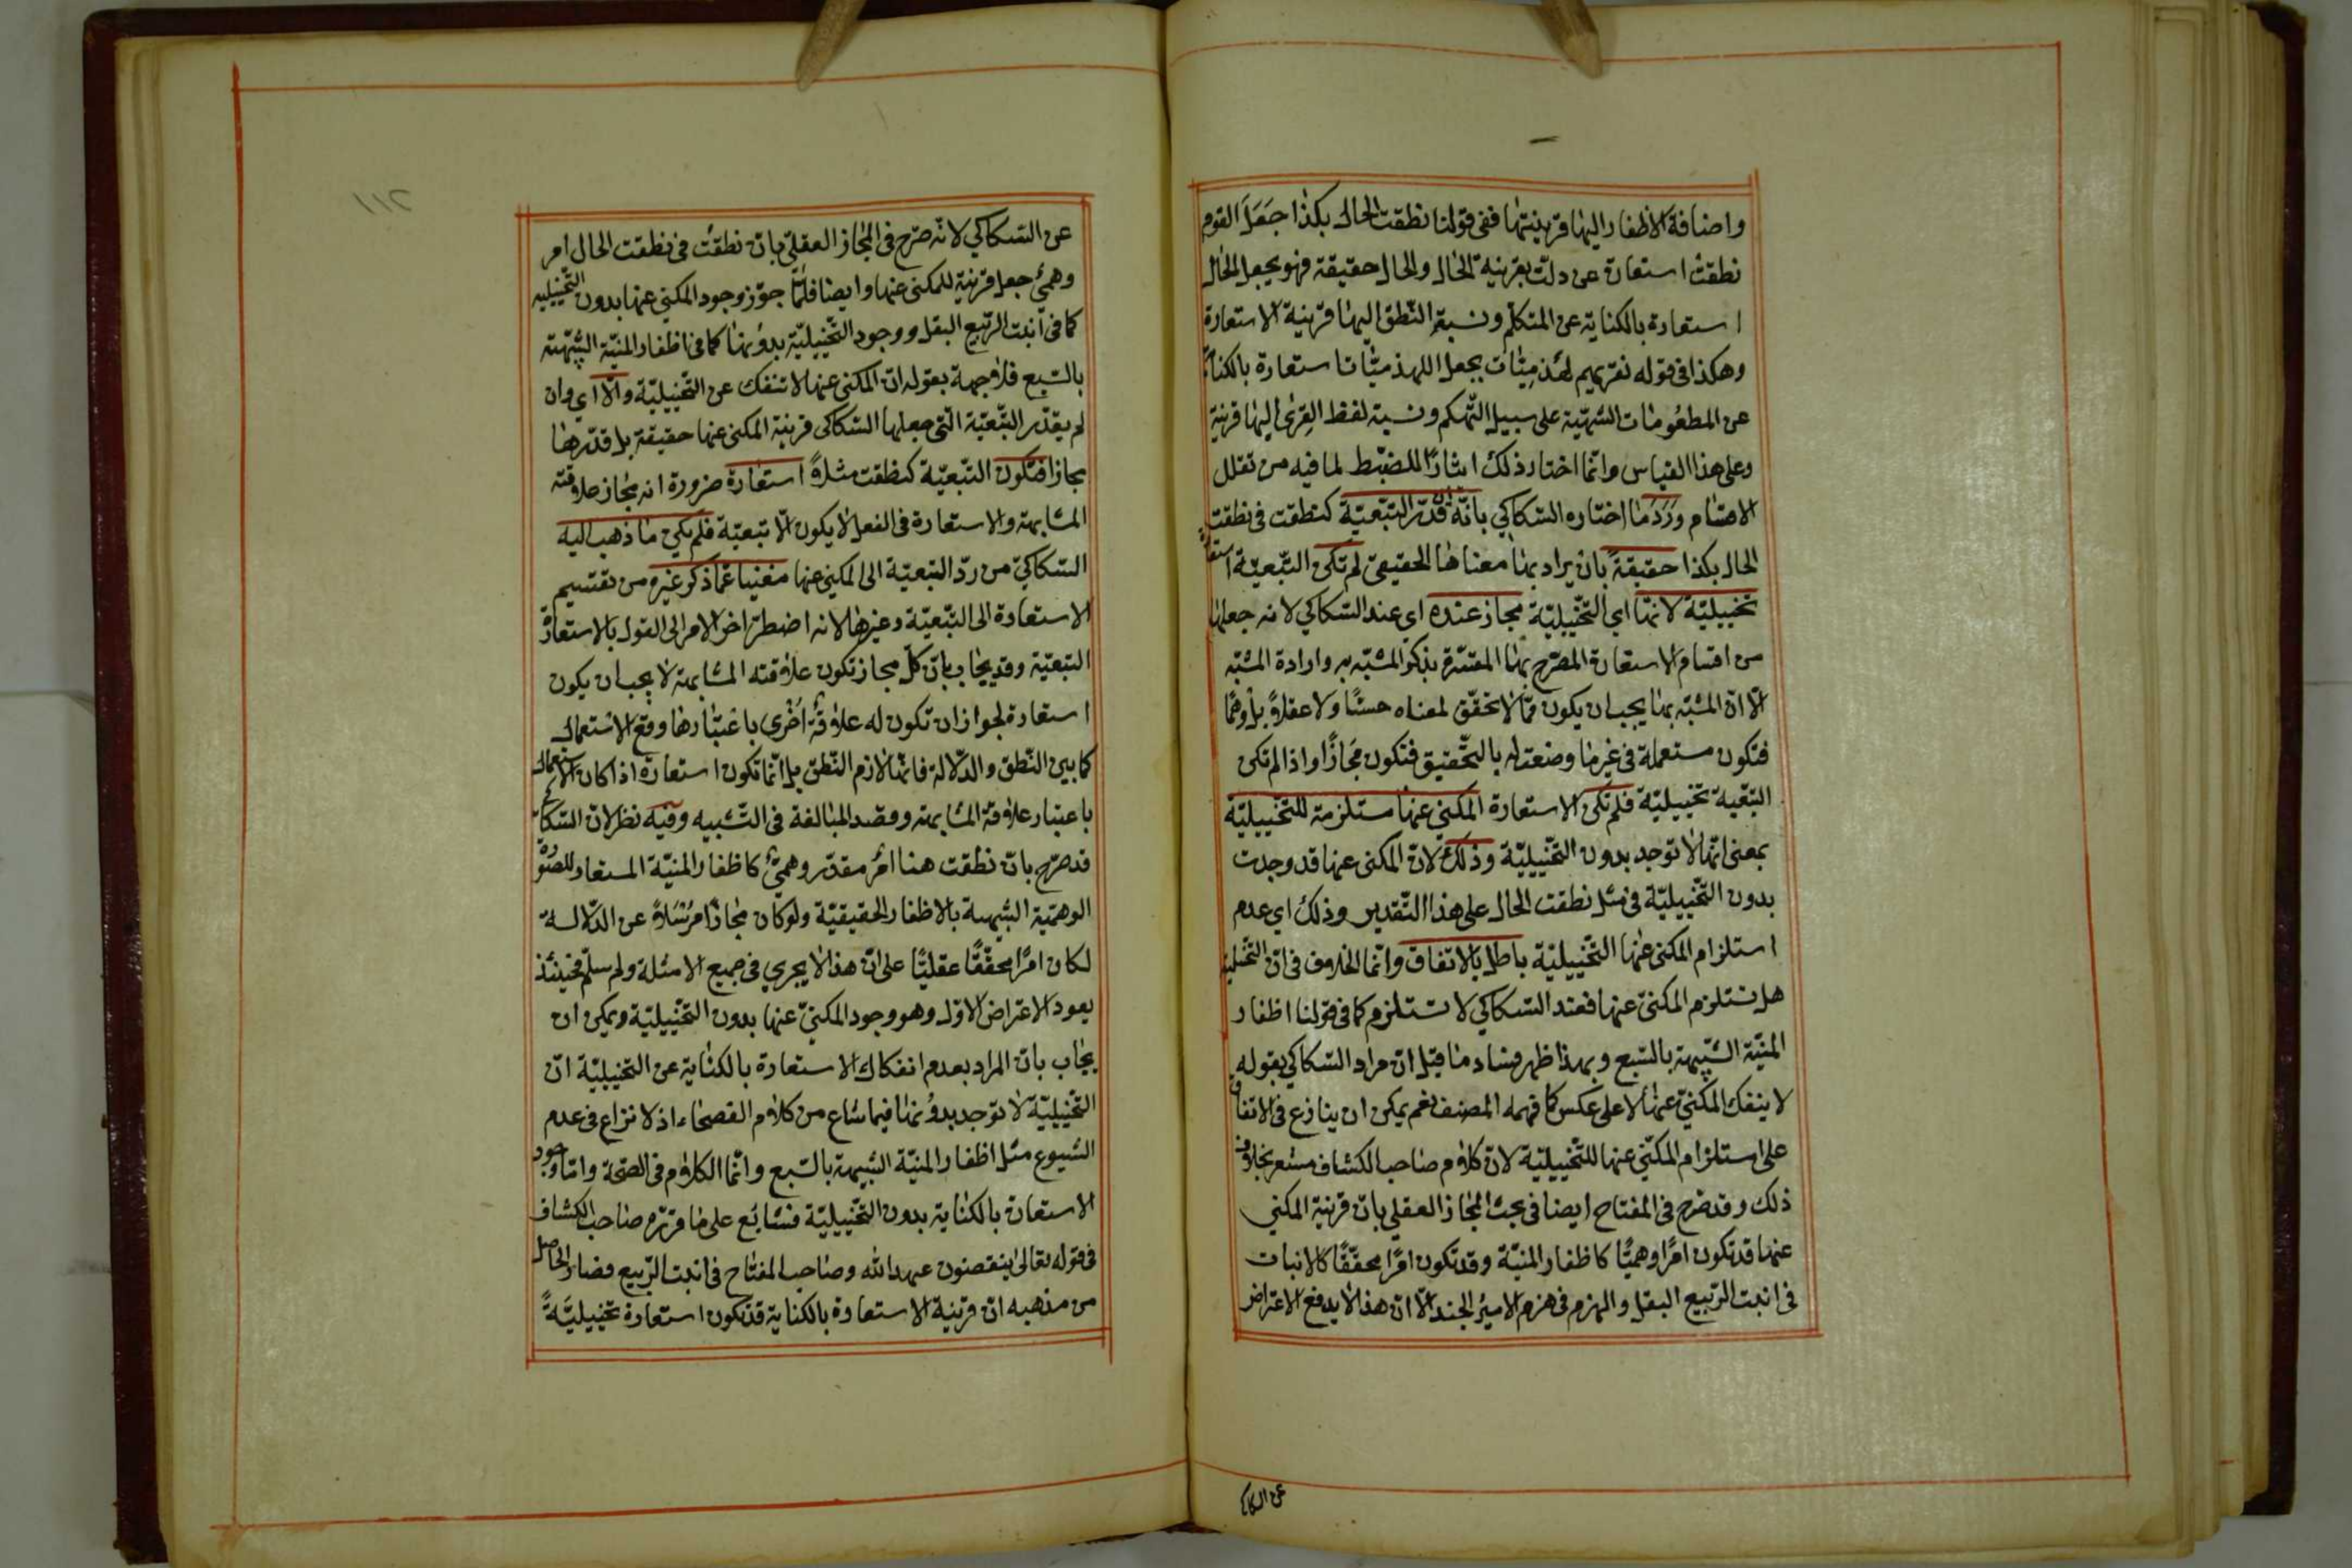 واضافة الاظفار اليها قرينتها ففى قولنا نطقت الحال بكذا جَعَلَ القوم
نطقت استعارة عن دلّت بقرينة الحال والحال حقيقة فهو يجعل الحال
استعارة بالكناية عن المتكلّم ونسبة النّطق اليها قرينة الاستعارة
وهكذا فى قوله نقريهم لهذميّات بجعل اللهذميّات استعارة بالكناية
عن المطعُومات الشهيّة على سبيل التّهكم ونسبة لفظ القِرى اليها قرينة
وعلى هذا القياس وانّما اختار ذلك ايثارًا للضّبط لما فيه من تقلل
الاقسام ورُدّ ما اختاره السّكاكي بانّه ان قدّر التّبعيّة كنطقت فى نطقت
الحال بكذا حقيقةً بان يراد بها معناها الحقيقى لم تكن التّبعيّة استعارة
تخييليّة لانّها اي التّخييليّة مجاز عنده اى عند السّكاكي لانه جعلها
من اقسام الاستعارة المصرّح بها المفسّرة بذكر المشبّه به وارادة المشبّه
الّا انّ المشبّه بها يجب ان يكون ممّا لا تحقّق لمعناه حسًّا ولا عقلاً بل وهمًا
فتكون مستعملة فى غير ما وضعت له بالتّحقيق فتكون مَجازًا واذا لم تكن
التبّعية تخييليّة فلم تكن الاستعارة المكني عنها مستلزمة للتخييليّة
بمعنى انّها لا توجد بدون التّخييليّة وذلك لانّ المكنى عنها قد وجدت
بدون التّخييليّة فى مثل نطقت الحال على هذا التّقدير وذلك اى عدم
استلزام المكنى عنها التّخييليّة باطل بالاتفاق وانّما الخلاف فى انّ التّخييلية
هل تستلزم المكنىّ عنها فعند السّكاكي لا تستلزم كما فى قولنا اظفار
المنيّة الشّبيهة بالسّبع وبهذا ظهر فساد ما قيل انّ مراد السّكاكي بقوله
لا ينفك المكنيّ عنها لا على عكس كما فهمه المصنف نعم يمكن ان ينازع فى الاتفاق
على استلزام المكنّي عنها للتّخييليّة لانّ كلام صاحب الكشاف مشعر بخلاف
ذلك وقد صرّح فى المفتاح ايضا فى بحث المجاز العقلي بانّ قرينة المكني
عنها قد تكون امرًا وهميًّا كاظفار المنيّة وقد تكون امرًا محقّقًا كالانبات
فى انبت الرّبيع البقل والهزم فى هزم الاميرُ الجند الّا انّ هذا لا يدفع الاعتراض
عن السكاكي
١١٢
عن السّكاكي لانّه صرّح فى المجاز العقلىّ بانّ نطقتْ فى نطقت الحال امر
وهمىّ جعل قرينة للمكنى عنها وايضا فلمّا جوّز وجود المكنى عنها بدون التّخييليه
كما فى انبت الرّبيع البقل ووجود التّخييليّة بدونها كما فى اظفار المنيّة الشّبيهة
بالسّبع فلا جهة بقوله انّ المكنى عنها لا تنفك عن التّخييليّة والّا اي وان
لم يقدّر التّبعيّة الّتى جعلها السّكاكى قرينة المكنى عنها حقيقة بل قدّرها
مجازا فتكون التّبعيّة كنطقت مثلاً استعارةً ضرورة انه مجاز علاقته
المشابهة والاستعارة فى الفعل لا يكون الّا تبعيّة فلم يكن ما ذهب اليه
السّكاكيّ من ردّ التبعيّة الى المكنى عنها مغنيا عمّا ذكره غيره من تقسيم
الاستعارة الى التّبعيّة وغيرها لانه اضطرّ اخر الامر الى القول بالاستعارة
التبعيّة وقد يجاب بانّ كلّ مجاز تكون علاقته المشابهة لا يجب ان يكون
استعارة لجواز ان تكون له علاقة اُخْرى باعتبارها وقع الاستعمال
كما بين النّطق والدّلالة فانّها لازم النّطق بل انّما تكون استعارة اذا كان الاستعمال
باعتبار علاقة المشابهة وقصد المبالغة فى التّشبيه وفيه نظر لانّ السّكاكى
قد صرّح بانّ نطقت هنا امْر مقدّر وهمىّ كاظفار المنيّة المستعار للصُّورة
الوهميّة الشّبيهة بالاظفار الحقيقيّة ولو كان مجازًا مرسَلاً عن الدّلالة
لكان امرًا محقّقًا عقليًّا على انّ هذا لا يجري فى جميع الامثلة ولو سلّم فحينئذ
يعود الاعتراض الاوّل وهو وجود المكنيّ عنها بدون التّخييليّة ويمكن ان
يجاب بانّ المراد بعدم انفكاك الاستعارة بالكناية عن التخييليّة انّ
التّخييليّة لا توجد بدونها فيما شاع من كلام الفصحاء اذ لا نزاع فى عدم
الشيوع مثل اظفار المنيّة الشّبيهة بالسّبع وانّما الكلام فى الصّحّة وامّا وجود
الاستعارة بالكناية بدون التّخييليّة فشايع على ما قرّره صاحب الكشاف
فى قوله تعالى ينقضون عهد الله وصاحب المفتاح فى انبت الرّبيع فصار الحاصل
من مذهبه انّ قرينة الاستعارة بالكناية قد تكون استعارة تخييليّةً